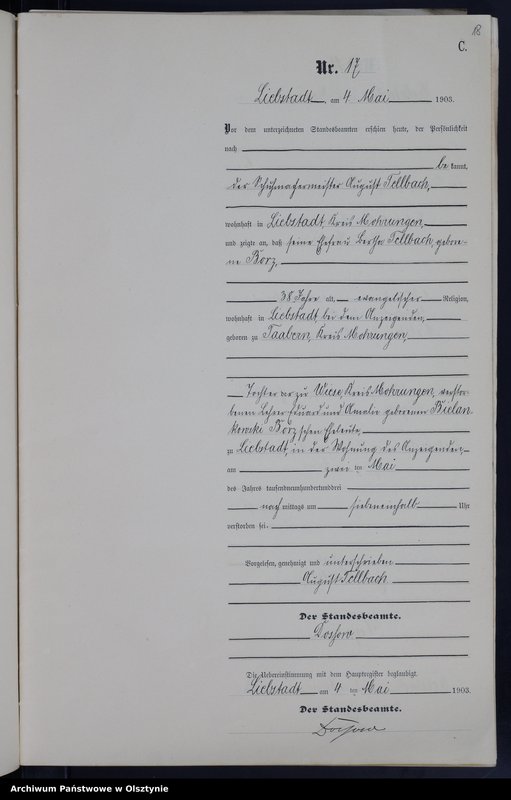 18
C.
Nr. 17
Liebstadt, am 4 Mai 1903.
Vor dem unterzeichneten Standesbeamten erschien heute, der Persönlichkeit
nach
be kannt,
der Schuhmachermeister August Fellbach,
wohnhaft in Liebstadt, Kreis Mohrungen,
und zeigte an, daß seine Ehefrau Bertha Fellbach, gebore-
ne Borz,
38 Jahre alt, evangelischer Religion,
wohnhaft in Liebstadt, bei dem Anzeigenden,
geboren zu Taabern, Kreis Mohrungen,
Tochter der zu Wiese, Kreis Mohrungen, verstor-
benen Lehrer Eduard und Amalie geborenen Bielan-
kowski Borz'schen Eheleute,
zu Liebstadt, in der Wohnung des Anzeigenden,
am zwei ten Mai
des Jahres tausendneunhundertunddrei
nach mittags um siebeneinhalb Uhr
verstorben sei.
Vorgelesen, genehmigt und unterschrieben
August Fellbach
Der Standesbeamte.
Die Uebereinstimmung mit dem Hauptregister beglaubigt.
Liebstadt am 4 ten Mai 1903.
Der Standesbeamte.
Archiwum Państwowe w Olsztynie